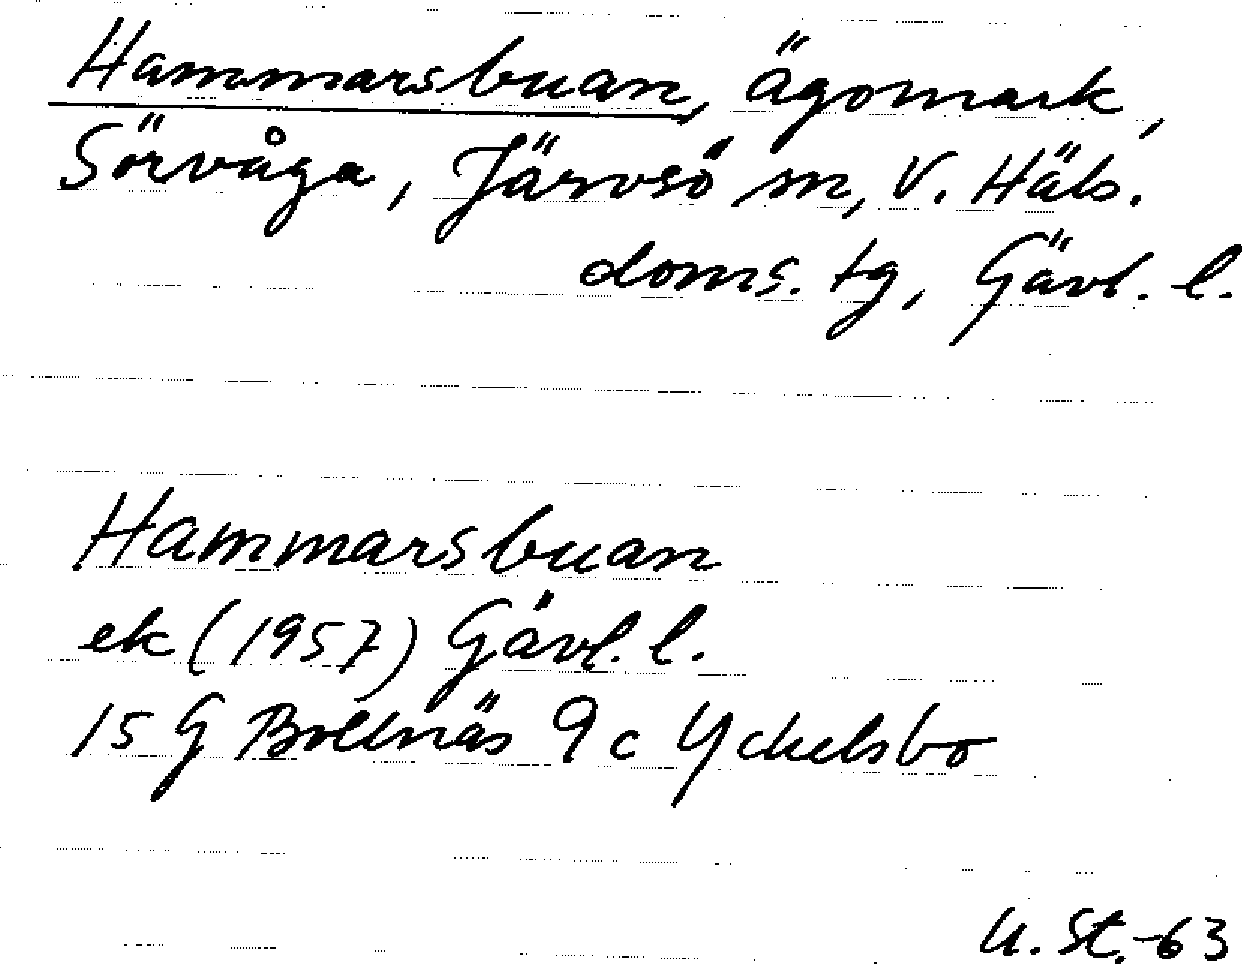 Hammarsbuan, ägomark,
Sörvåga, Järvsö sn, V. Häls.
doms. tg, Gävl. l.
Hammarsbuan
ek (1957) Gävl. l.
15 G Bollnäs 9 c Yckelsbo
U. St. -63